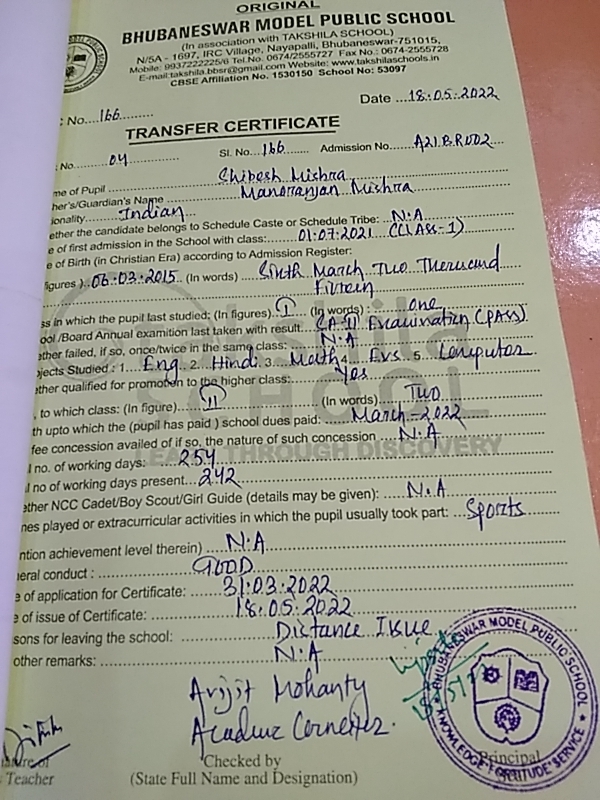 ORIGINAL
BHUBANESWAR MODEL PUBLIC SCHOOL
(In association with TAKSHILA SCHOOL)
N/5A - 1697, IRC Village, Nayapalli, Bhubaneswar-751015,
Mobile: 9937222225/6 Tel.No. 0674/2555727 Fax No.: 0674-2555728
E-mail:takshila.bbsr@gmail.com Website: www.takshilaschools.in
CBSE Affiliation No. 1530150 School No: 53097
No....166.......... Date ...18.05.2022
TRANSFER CERTIFICATE
No.......04 Sl. No...166....... Admission No...... A21BR002
me of Pupil ........ Shibesh Mishra
her's/Guardian's Name ....... Manoranjan Mishra
ionality....... Indian
ether the candidate belongs to Schedule Caste or Schedule Tribe: N.A
e of first admission in the School with class: 01.07.2021 (CLASS-1)
e of Birth (in Christian Era) according to Admission Register:
igures )..06.03.2015.. (In words) ... Sixth March Two Thousand
Fifteen
ss in which the pupil last studied: (In figures) I (In words) : one
ool /Board Annual examition last taken with result SA-II Examination (PASS)
ether failed, if so, once/twice in the same class: N.A
jects Studied : 1 Eng 2. Hindi 3. Math 4. Evs 5. Computer
ether qualified for promoton to the higher class: Yes
, to which class: (In figure) II (In words) Two
th upto which the (pupil has paid ) school dues paid: March-2022
fee concession availed of if so, the nature of such concession N.A
l no. of working days: 254
l no of working days present 242
ether NCC Cadet/Boy Scout/Girl Guide (details may be given): N.A
nes played or extracurricular activities in which the pupil usually took part: Sports
ntion achievement level therein) N.A
neral conduct : GOOD
e of application for Certificate: 31.03.2022
e of issue of Certificate: 18.05.2022
sons for leaving the school: Distance Issue
other remarks: N.A
Takshila
SCHOOL
LEARN THROUGH DISCOVERY
BHUBANESWAR MODEL PUBLIC SCHOOL
KNOWLEDGE FORTITUDE SERVICE
Arijit Mohanty
Checked by
(State Full Name and Designation)
Teacher
Principal